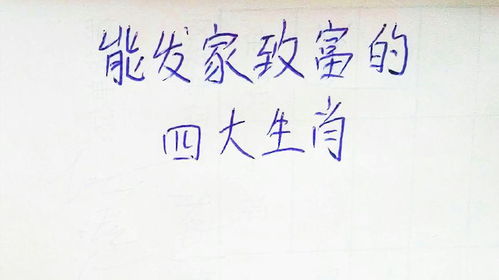 能发家致富的
四大生肖